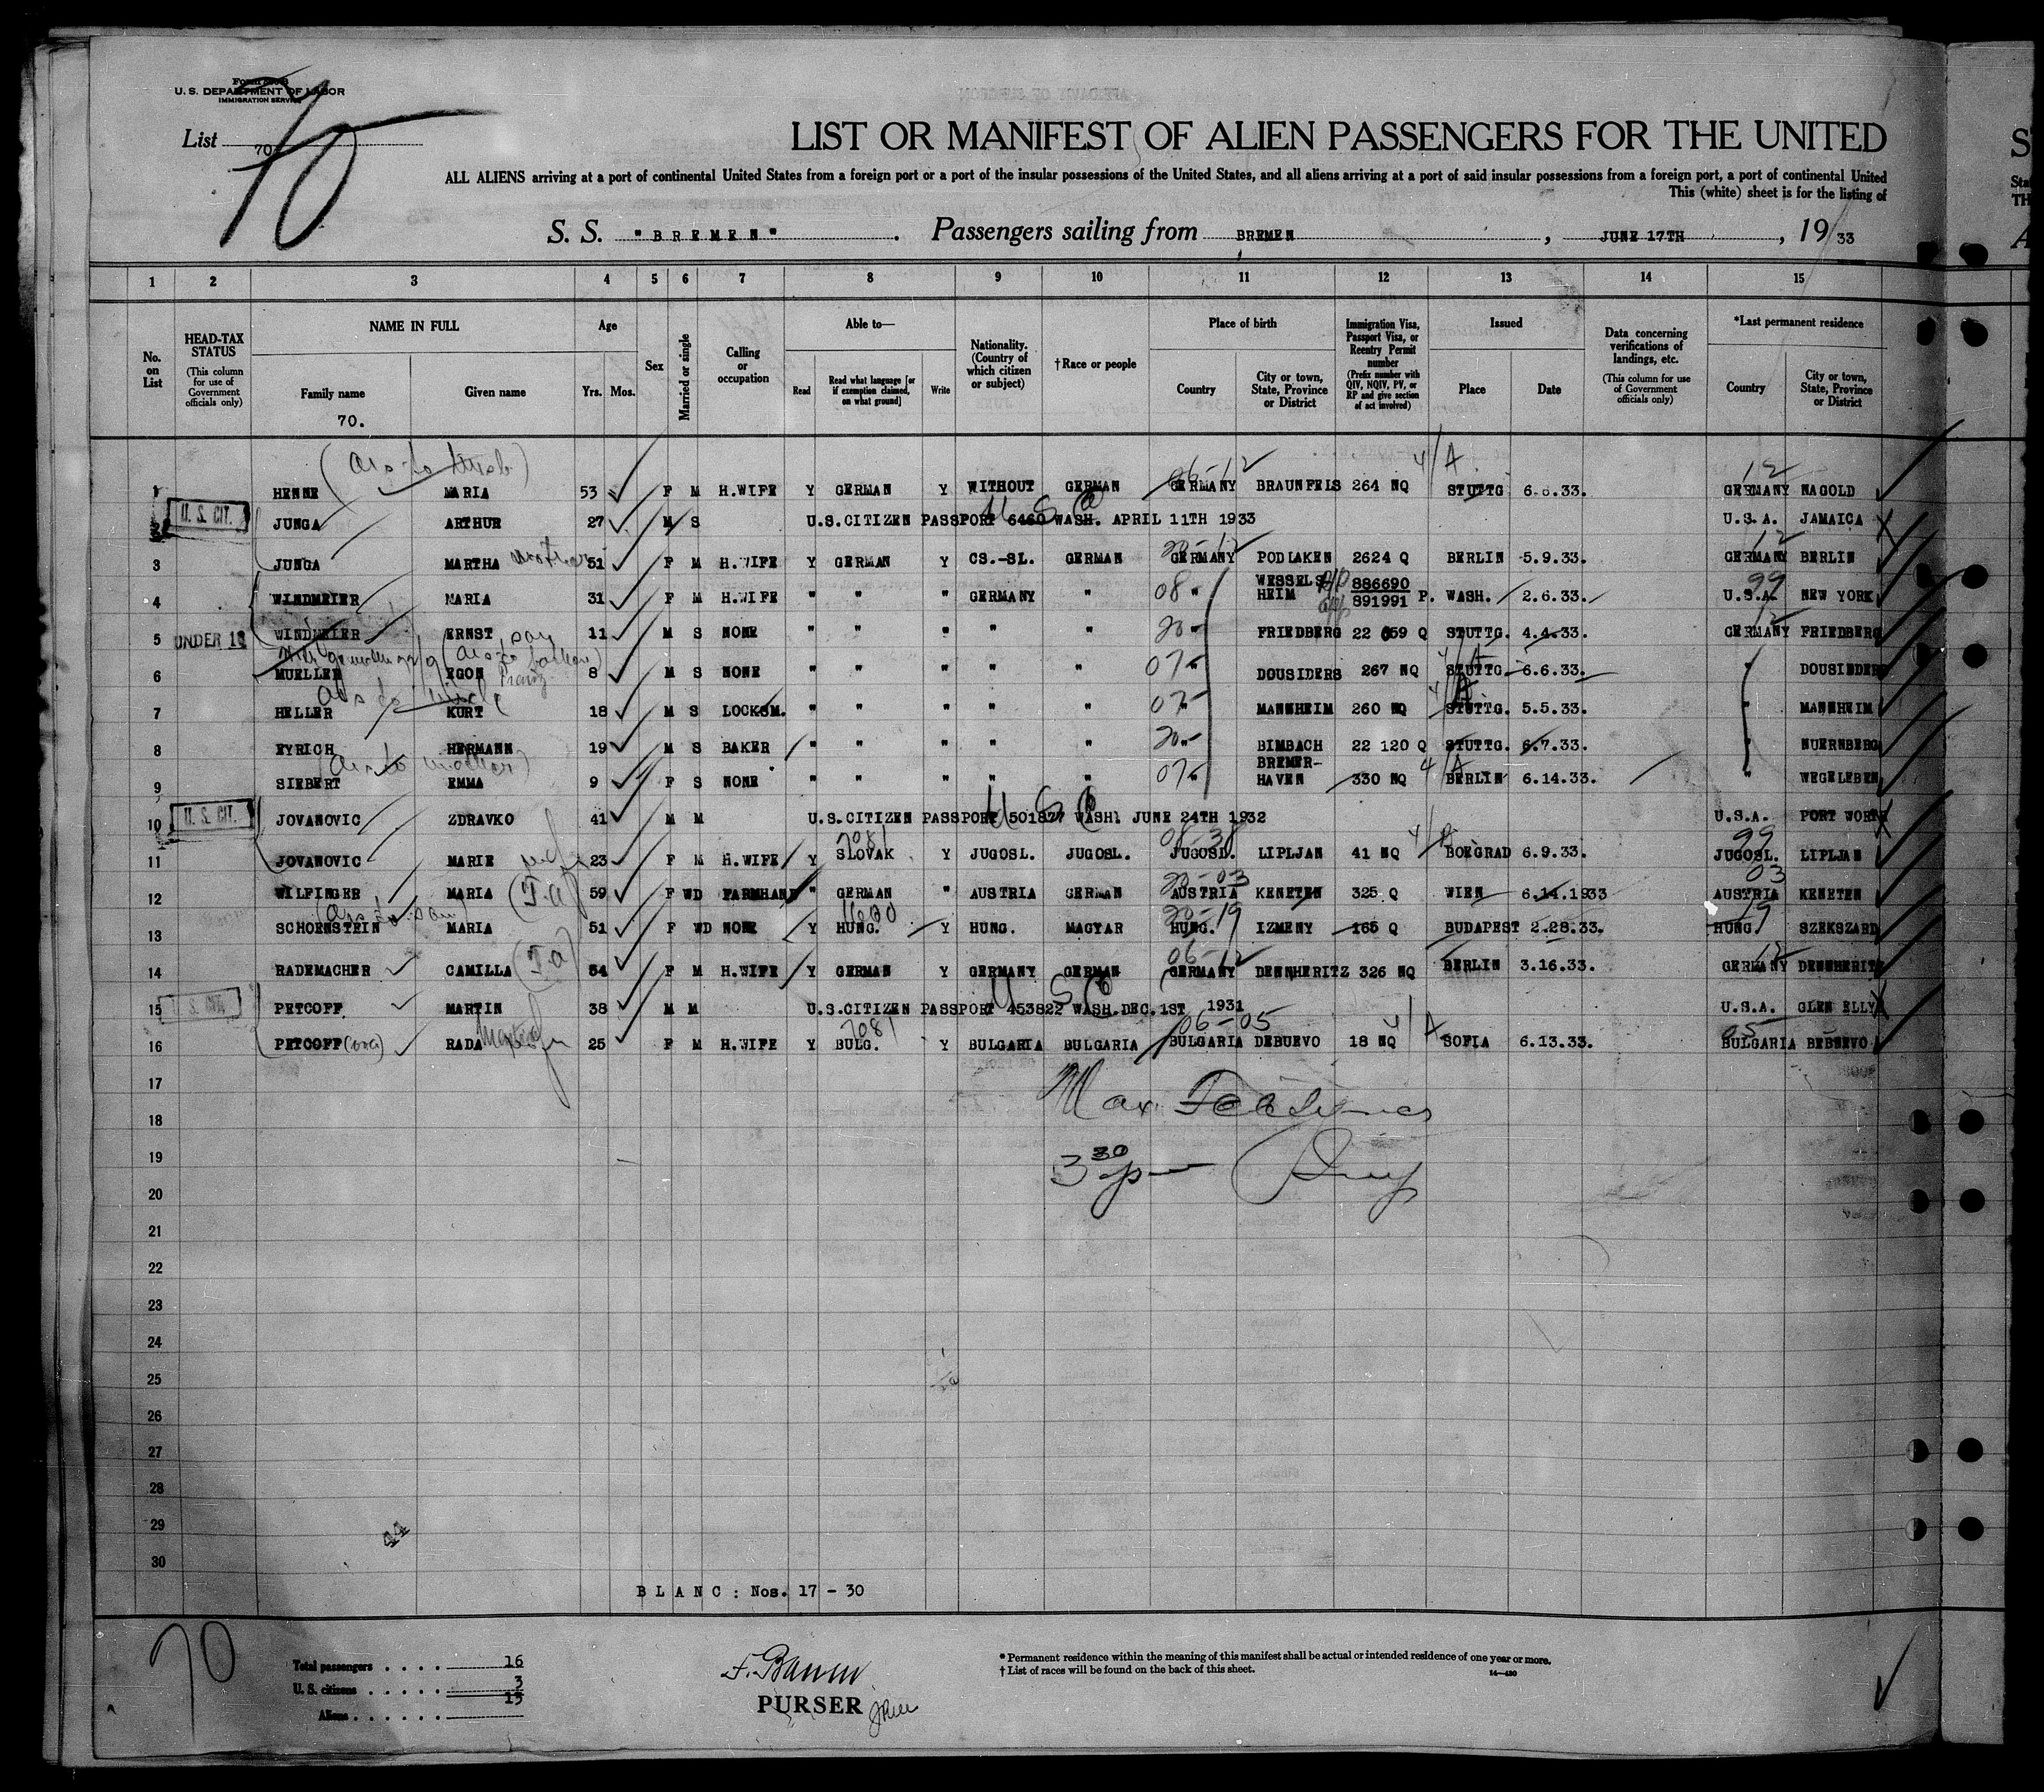 U. S. DEPARTMENT OF LABOR
IMMIGRATION SERVICE
List 70
70
LIST OR MANIFEST OF ALIEN PASSENGERS FOR THE UNITED
ALL ALIENS arriving at a port of continental United States from a foreign port or a port of the insular possessions of the United States, and all aliens arriving at a port of said insular possessions from a foreign port, a port of continental United
This (white) sheet is for the listing of
S. S. "BREMEN". Passengers sailing from BREMEN, JUNE 17TH, 19 33
1 2 3 4 5 6 7 8 9 10 11 12 13 14 15
No. on List
HEAD-TAX STATUS (This column for use of Government officials only)
NAME IN FULL Family name Given name
70.
Age Yrs. Mos.
Sex
Married or single
Calling or occupation
Able to— Read Read what language [or if exemption claimed, on what ground] Write
Nationality. (Country of which citizen or subject)
†Race or people
Place of birth Country City or town, State, Province or District
Immigration Visa, Passport Visa, or Reentry Permit number (Prefix number with QIV, NQIV, PV, or RP and give section of act involved)
Issued Place Date
Data concerning verifications of landings, etc. (This column for use of Government officials only)
*Last permanent residence Country City or town, State, Province or District
06-12 4/A 12
1 HENNE MARIA 53 F M H.WIFE Y GERMAN Y WITHOUT GERMAN GERMANY BRAUNFELS 264 NQ STUTTG 6.6.33. GERMANY NAGOLD
2 U. S. CIT. JUNGA ARTHUR 27 M S U.S.CITIZEN PASSPORT 6460 WASH. APRIL 11TH 1933 U.S.A. JAMAICA
3 JUNGA MARTHA mother 51 F M H.WIFE Y GERMAN Y CS.-SL. GERMAN GERMANY PODLAKEN 2624 Q BERLIN 5.9.33. GERMANY BERLIN
4 WINDMEIER MARIA 31 F M H.WIFE " " " GERMANY " 08 " WESSELS HEIM 886690 891991 P. WASH. 2.6.33. U.S.A. NEW YORK
5 UNDER 16 WINDMEIER ERNST son 11 M S NONE " " " " " 20 FRIEDBERG 22 659 Q STUTTG. 4.4.33. GERMANY FRIEDBERG
6 MUELLER EGON 8 M S NONE " " " " " 07 DOUSIDERS 267 NQ STUTTG. 6.6.33. " DOUSINDERS
7 HELLER KURT 18 M S LOCKSM. " " " " " 07 MANNHEIM 260 NQ STUTTG. 5.5.33. " MANNHEIM
8 EYRICH HERMANN 19 M S BAKER " " " " " 20 BIMBACH 22 120 Q STUTTG. 6.7.33. " NUERNBERG
9 SIEBERT EMMA 9 F S NONE " " " " " 07 BREMER-HAVEN 330 NQ 4/A BERLIN 6.14.33. " WEGELEBEN
10 U. S. CIT. JOVANOVIC ZDRAVKO 41 M M U.S.CITIZEN PASSPORT 501877 WASH. JUNE 24TH 1932 U.S.A. PORT WORTH
11 JOVANOVIC MARIE wife 23 F M H.WIFE Y SLOVAK Y JUGOSL. JUGOSL. JUGOSL. LIPLJAN 41 NQ BOEGRAD 6.9.33. 99 JUGOSL. LIPLJAN
12 WILFINGER MARIA 59 F WD FARMHAND " GERMAN " AUSTRIA GERMAN 20-03 AUSTRIA KENETEN 325 Q WIEN 6.14.1933 03 AUSTRIA KENETEN
13 SCHOENSTEIN MARIA 51 F WD NONE Y HUNG. Y HUNG. MAGYAR 20-19 HUNG. IZMENY 165 Q BUDAPEST 2.28.33. 19 HUNG. SZEKSZARD
14 RADEMACHER CAMILLA 54 F M H.WIFE Y GERMAN Y GERMANY GERMAN 06-12 GERMANY DENNHERITZ 326 NQ BERLIN 3.16.33. 12 GERMANY DENNHERITZ
15 U. S. CIT. PETCOFF MARTIN 38 M M U.S.CITIZEN PASSPORT 453822 WASH.DEC.1ST 1931 U.S.A. GLEN ELLY
16 PETCOFF (ova) RADA 25 F M H.WIFE Y BULG. Y BULGARIA BULGARIA 06-05 BULGARIA DEBUEVO 18 NQ 4/A SOFIA 6.13.33. 05 BULGARIA BEBNEVO
17
18
19 3 30
20
21
22
23
24
25
26
27
28
29
30
44
BLANC: Nos. 17 - 30
70
Total passengers . . . . 16
U. S. citizens . . . . . 3
Aliens . . . . . . 13
PURSER
* Permanent residence within the meaning of this manifest shall be actual or intended residence of one year or more.
† List of races will be found on the back of this sheet.